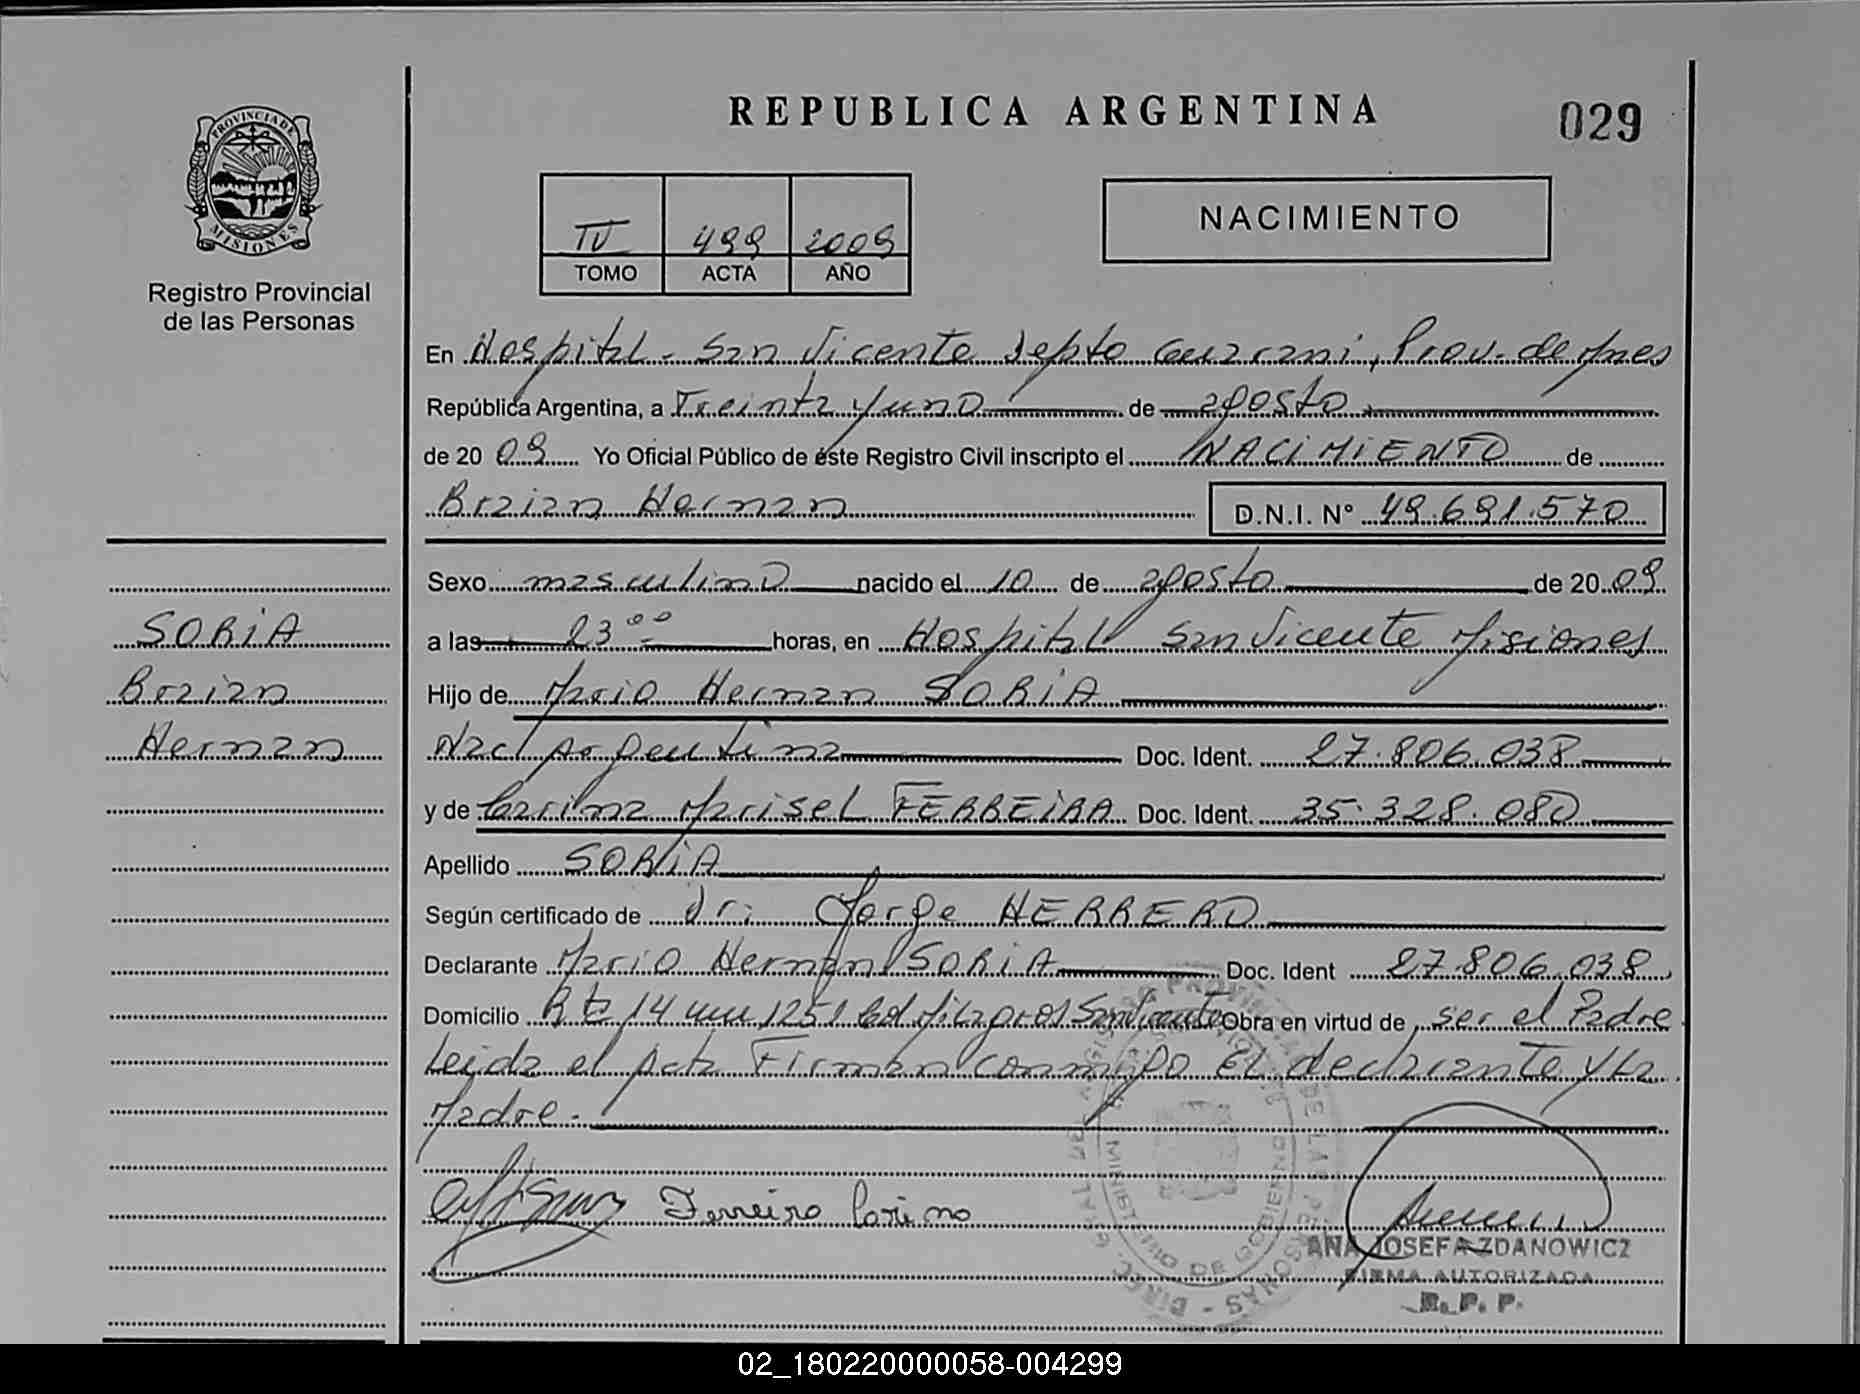 REPUBLICA ARGENTINA
029
PROVINCIA DE
MISIONES
Registro Provincial
de las Personas
IV 499 2009
TOMO ACTA AÑO
NACIMIENTO
En Hospital - San Vicente Depto Guarani, Prov. de Mnes
República Argentina, a Treinta y uno de agosto
de 20 09 Yo Oficial Público de éste Registro Civil inscripto el NACIMIENTO de
Braian Hernan D.N.I. Nº 49.691.570
Sexo masculino nacido el 10 de agosto de 20 09
a las 23 ºº horas, en Hospital San Vicente Misiones
Hijo de Mario Hernan SORIA
Nac Argentina Doc. Ident. 27.806.038
y de Carina Marisel FERREIRA Doc. Ident. 35.328.080
Apellido SORIA
Según certificado de Dr. Jorge HERRERO
Declarante Mario Hernan SORIA Doc. Ident 27.806.038
Domicilio 14 1251 Milagros San Vicente Obra en virtud de ser el Padre
Leida el acta Firman conmigo El declarante y La
Madre.-
SORIA
Braian
Hernan
Ferreira Carina
ANA JOSEFA ZDANOWICZ
FIRMA AUTORIZADA
R. P. P.
MINISTERIO DE GOBIERNO
02_180220000058-004299